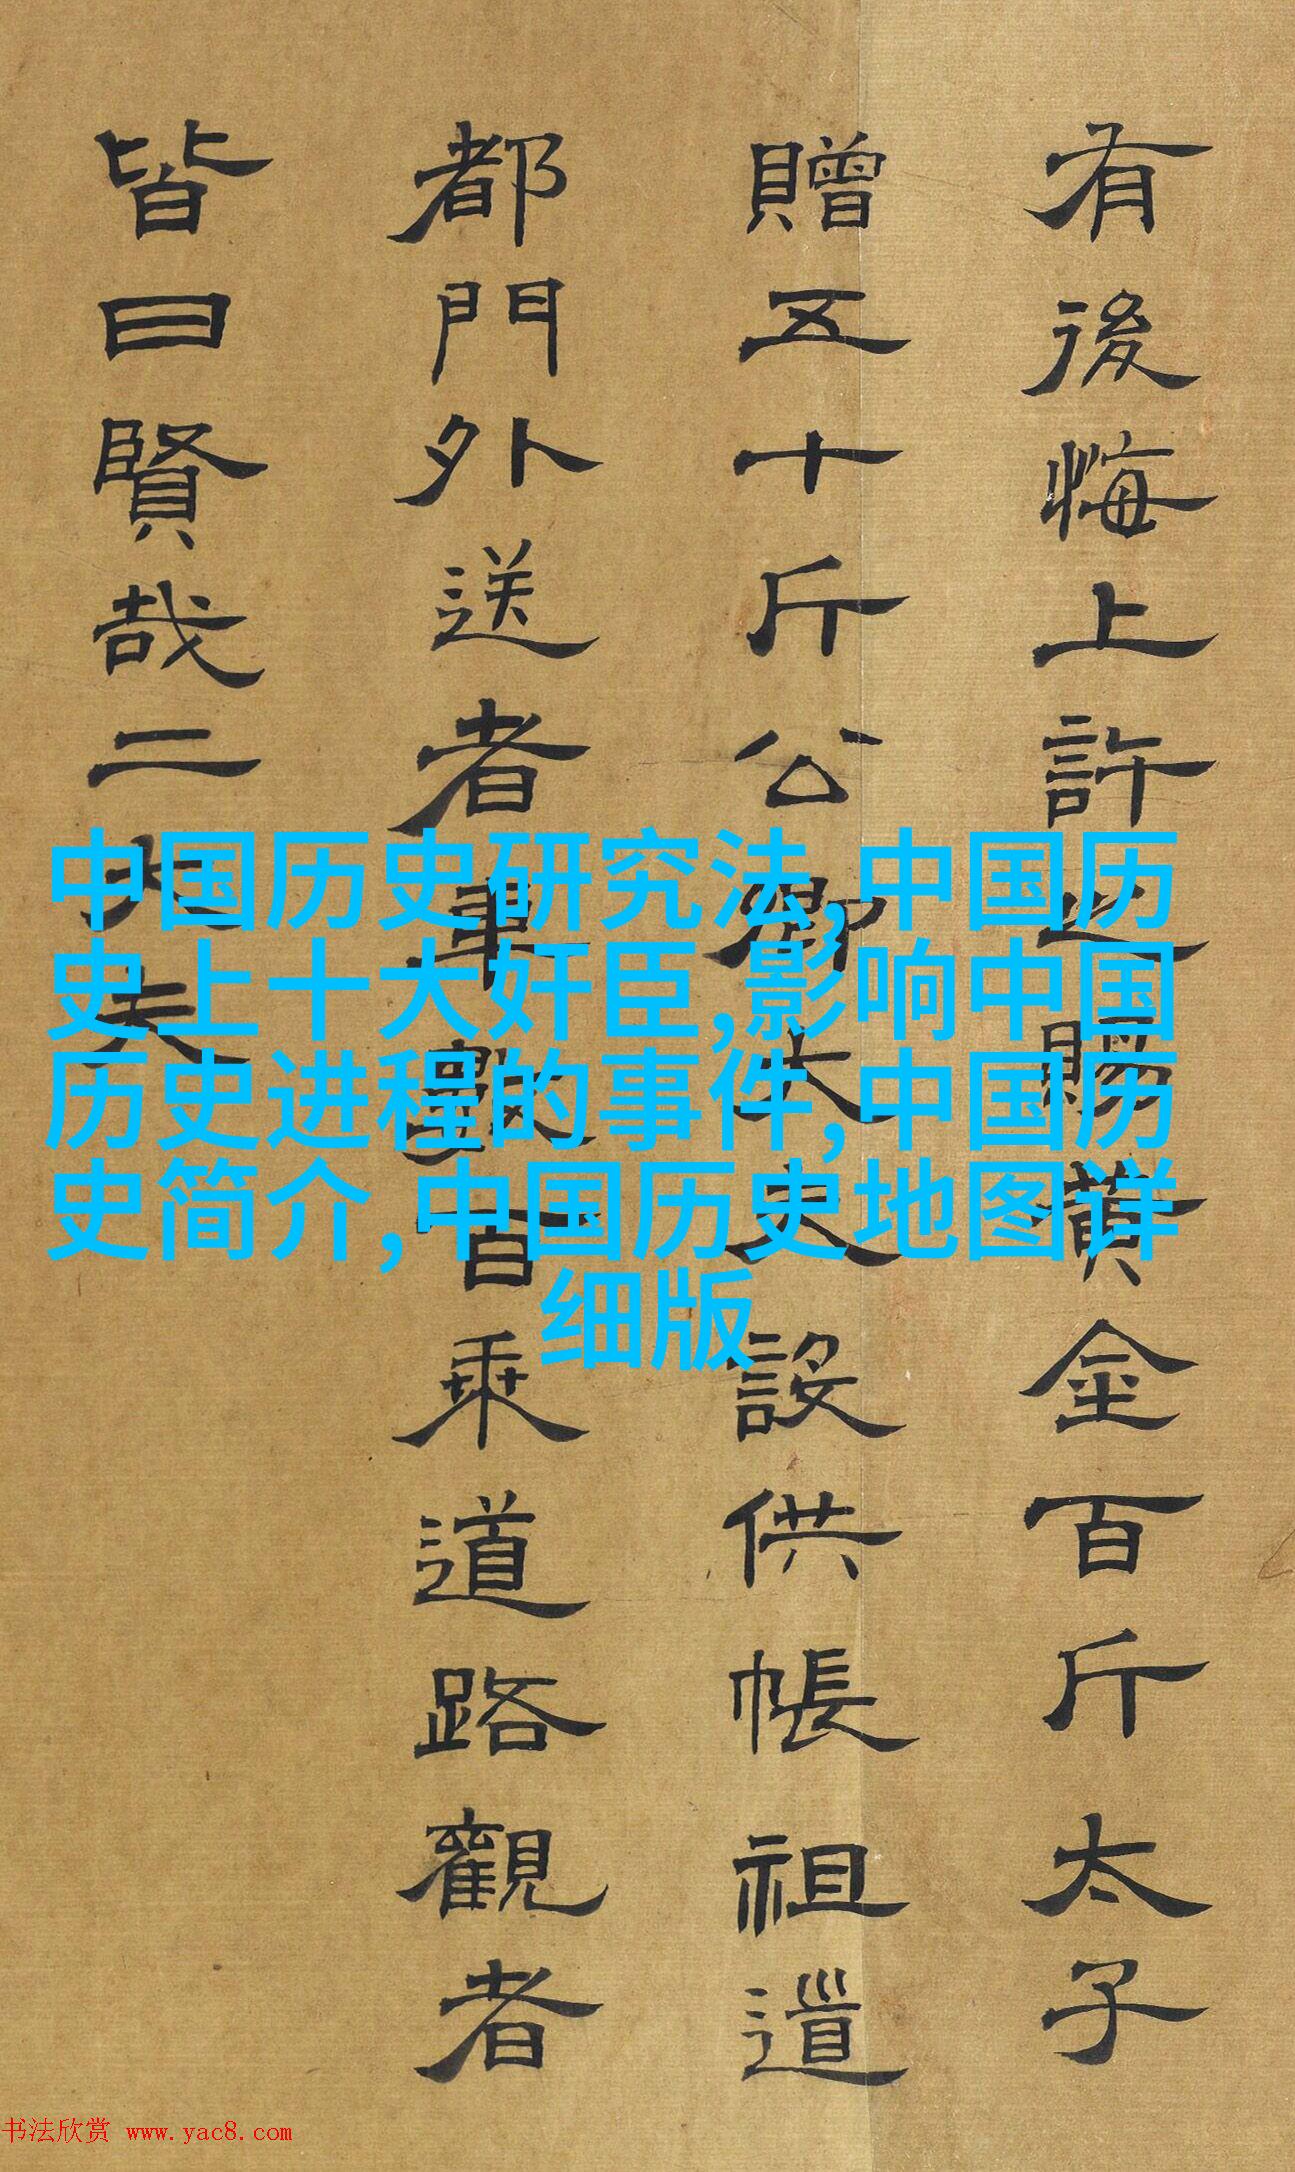 有後悔上許之賜黄金百斤太子
贈五十斤公卿大夫設供帳祖道
都門外送者車數百乘道路觀者
皆曰賢哉二大夫
中国历史研究法,中国历
史上十大奸臣,影响中国
历史进程的事件,中国历
史简介,中国历史地图详
细版
书法欣赏 www.yac8.com